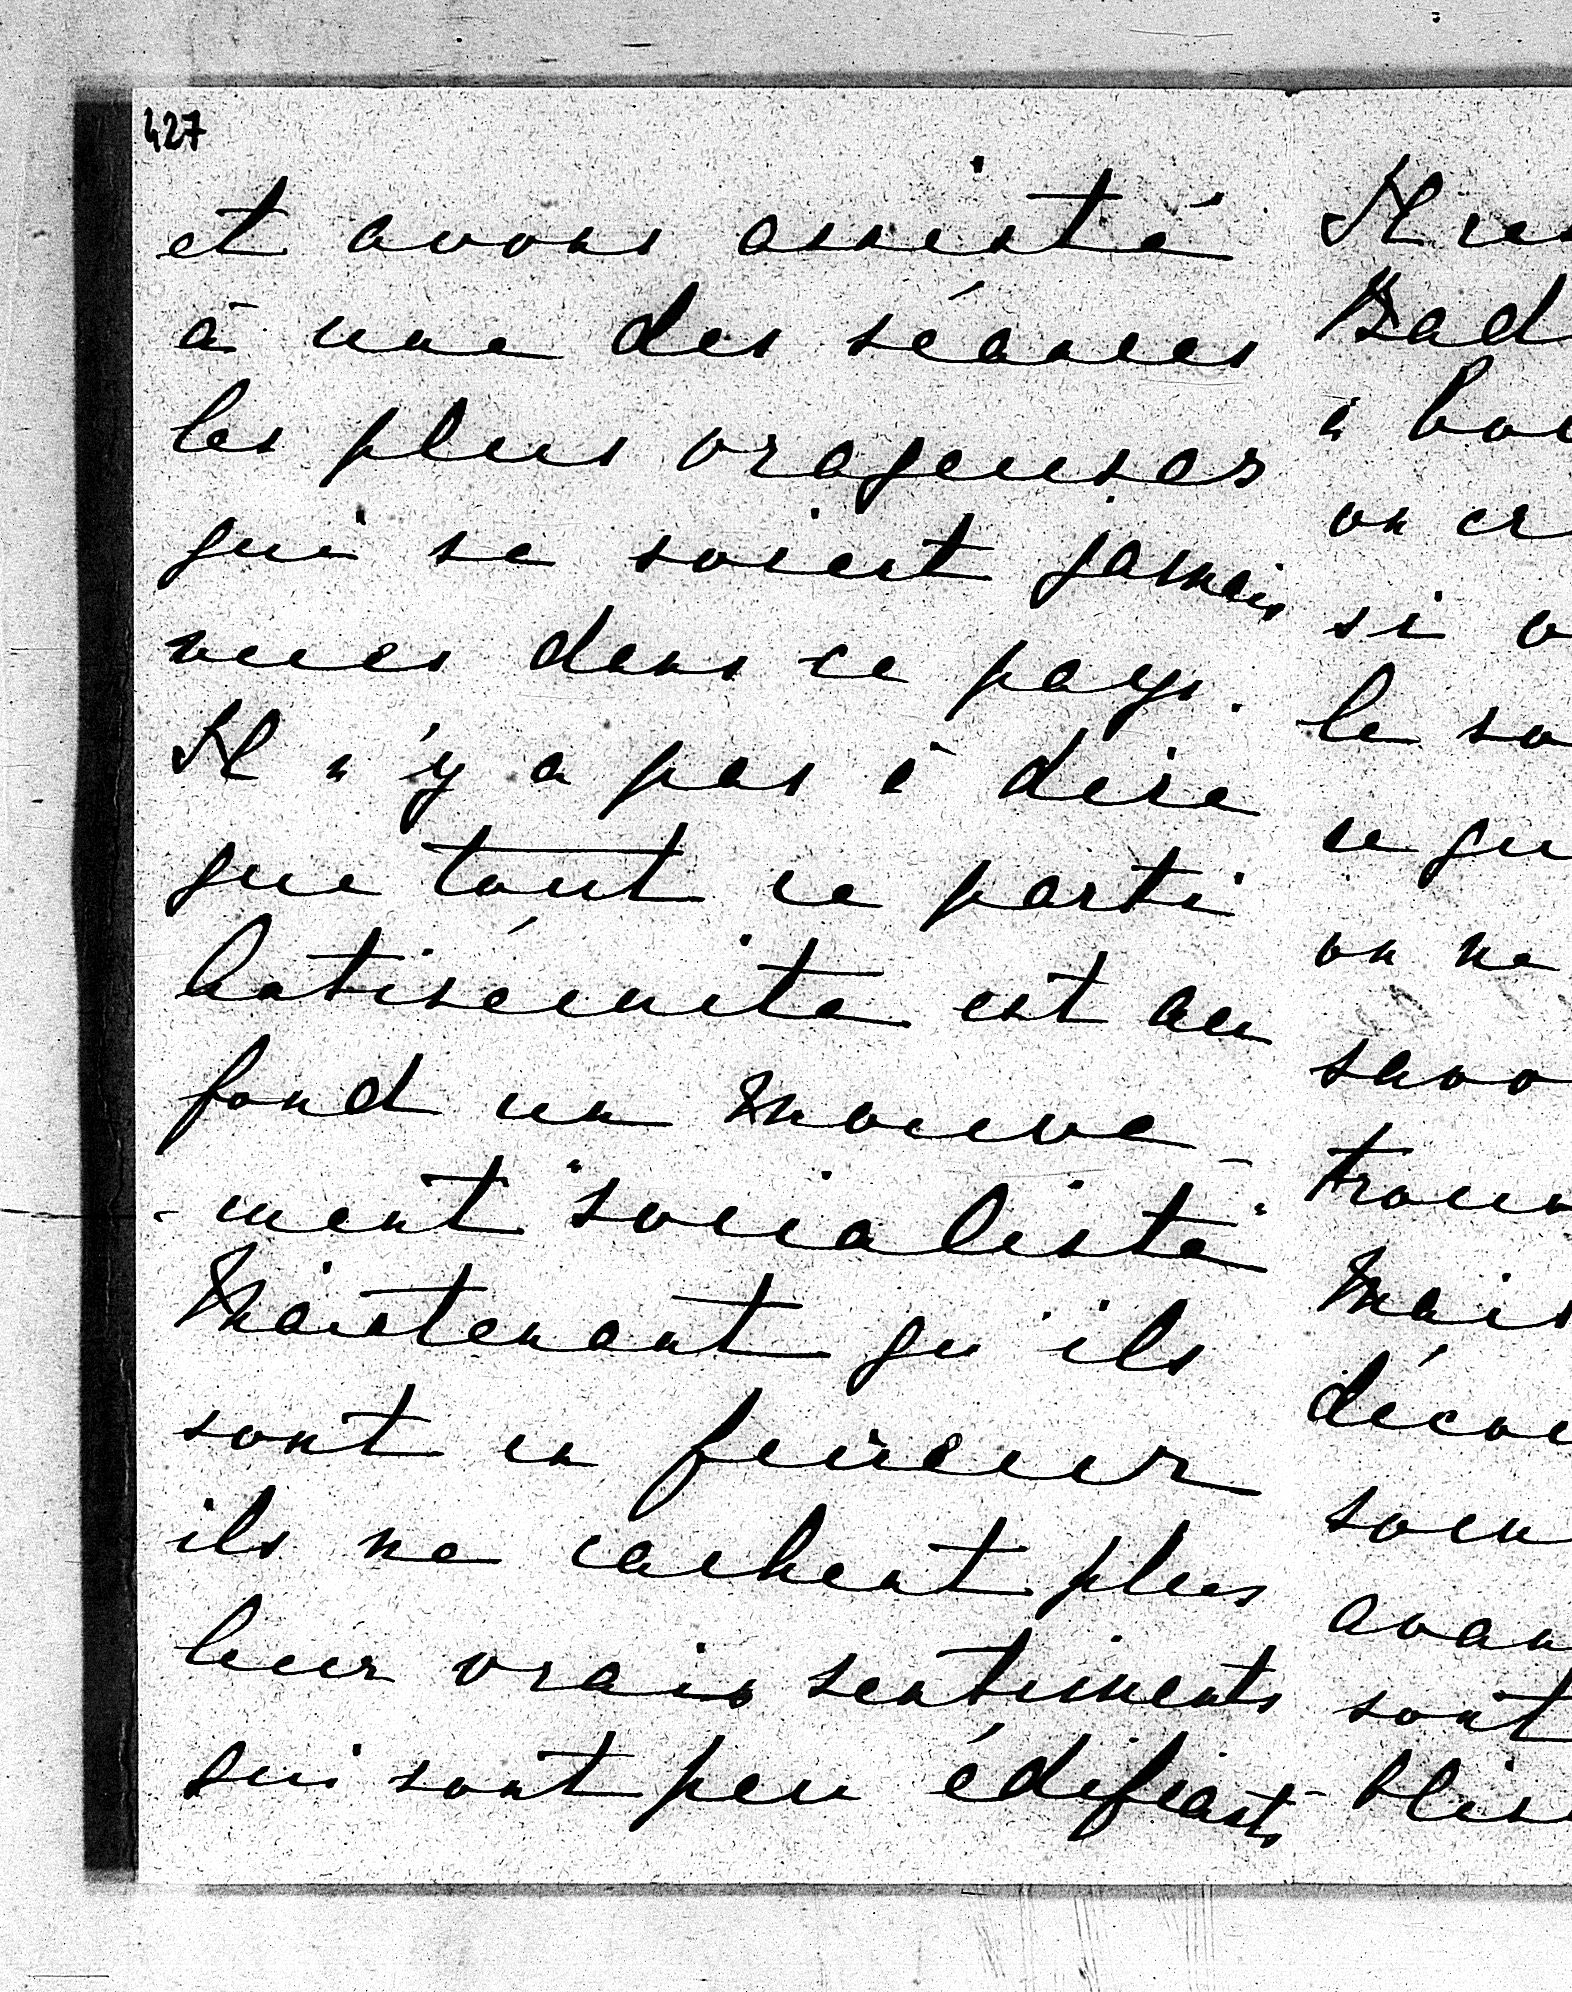 427
et avons assisté
à une des séances
les plus orageuses
qui se soient jamais
vues dans ce pays.
Il n'y a pas à dire
que tout ce parti
antisémite est au
fond un mouve-
-ment "socialiste"
Maintenant qu'ils
sont en fureur
ils ne cachent plus
leur vrais sentiments
qui sont peu édifiants
Il
à
on
si
le
on ne
Mais
sont